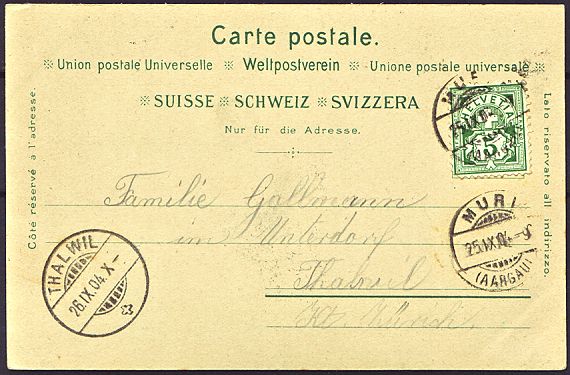 Carte postale.
※ Union postale Universelle ※ Weltpostverein ※ Unione postale universale ※
※ SUISSE ※ SCHWEIZ ※ SVIZZERA
Nur für die Adresse.
Côté réservé à l'adresse.
Lato riservato all indirizzo.
HELVETIA
5
MURI
25.IX.04
(AARGAU)
Familie Gallmann
im Unterdorf
Thalwil
Kt. Zürich.
THALWIL
26.IX.04.X-